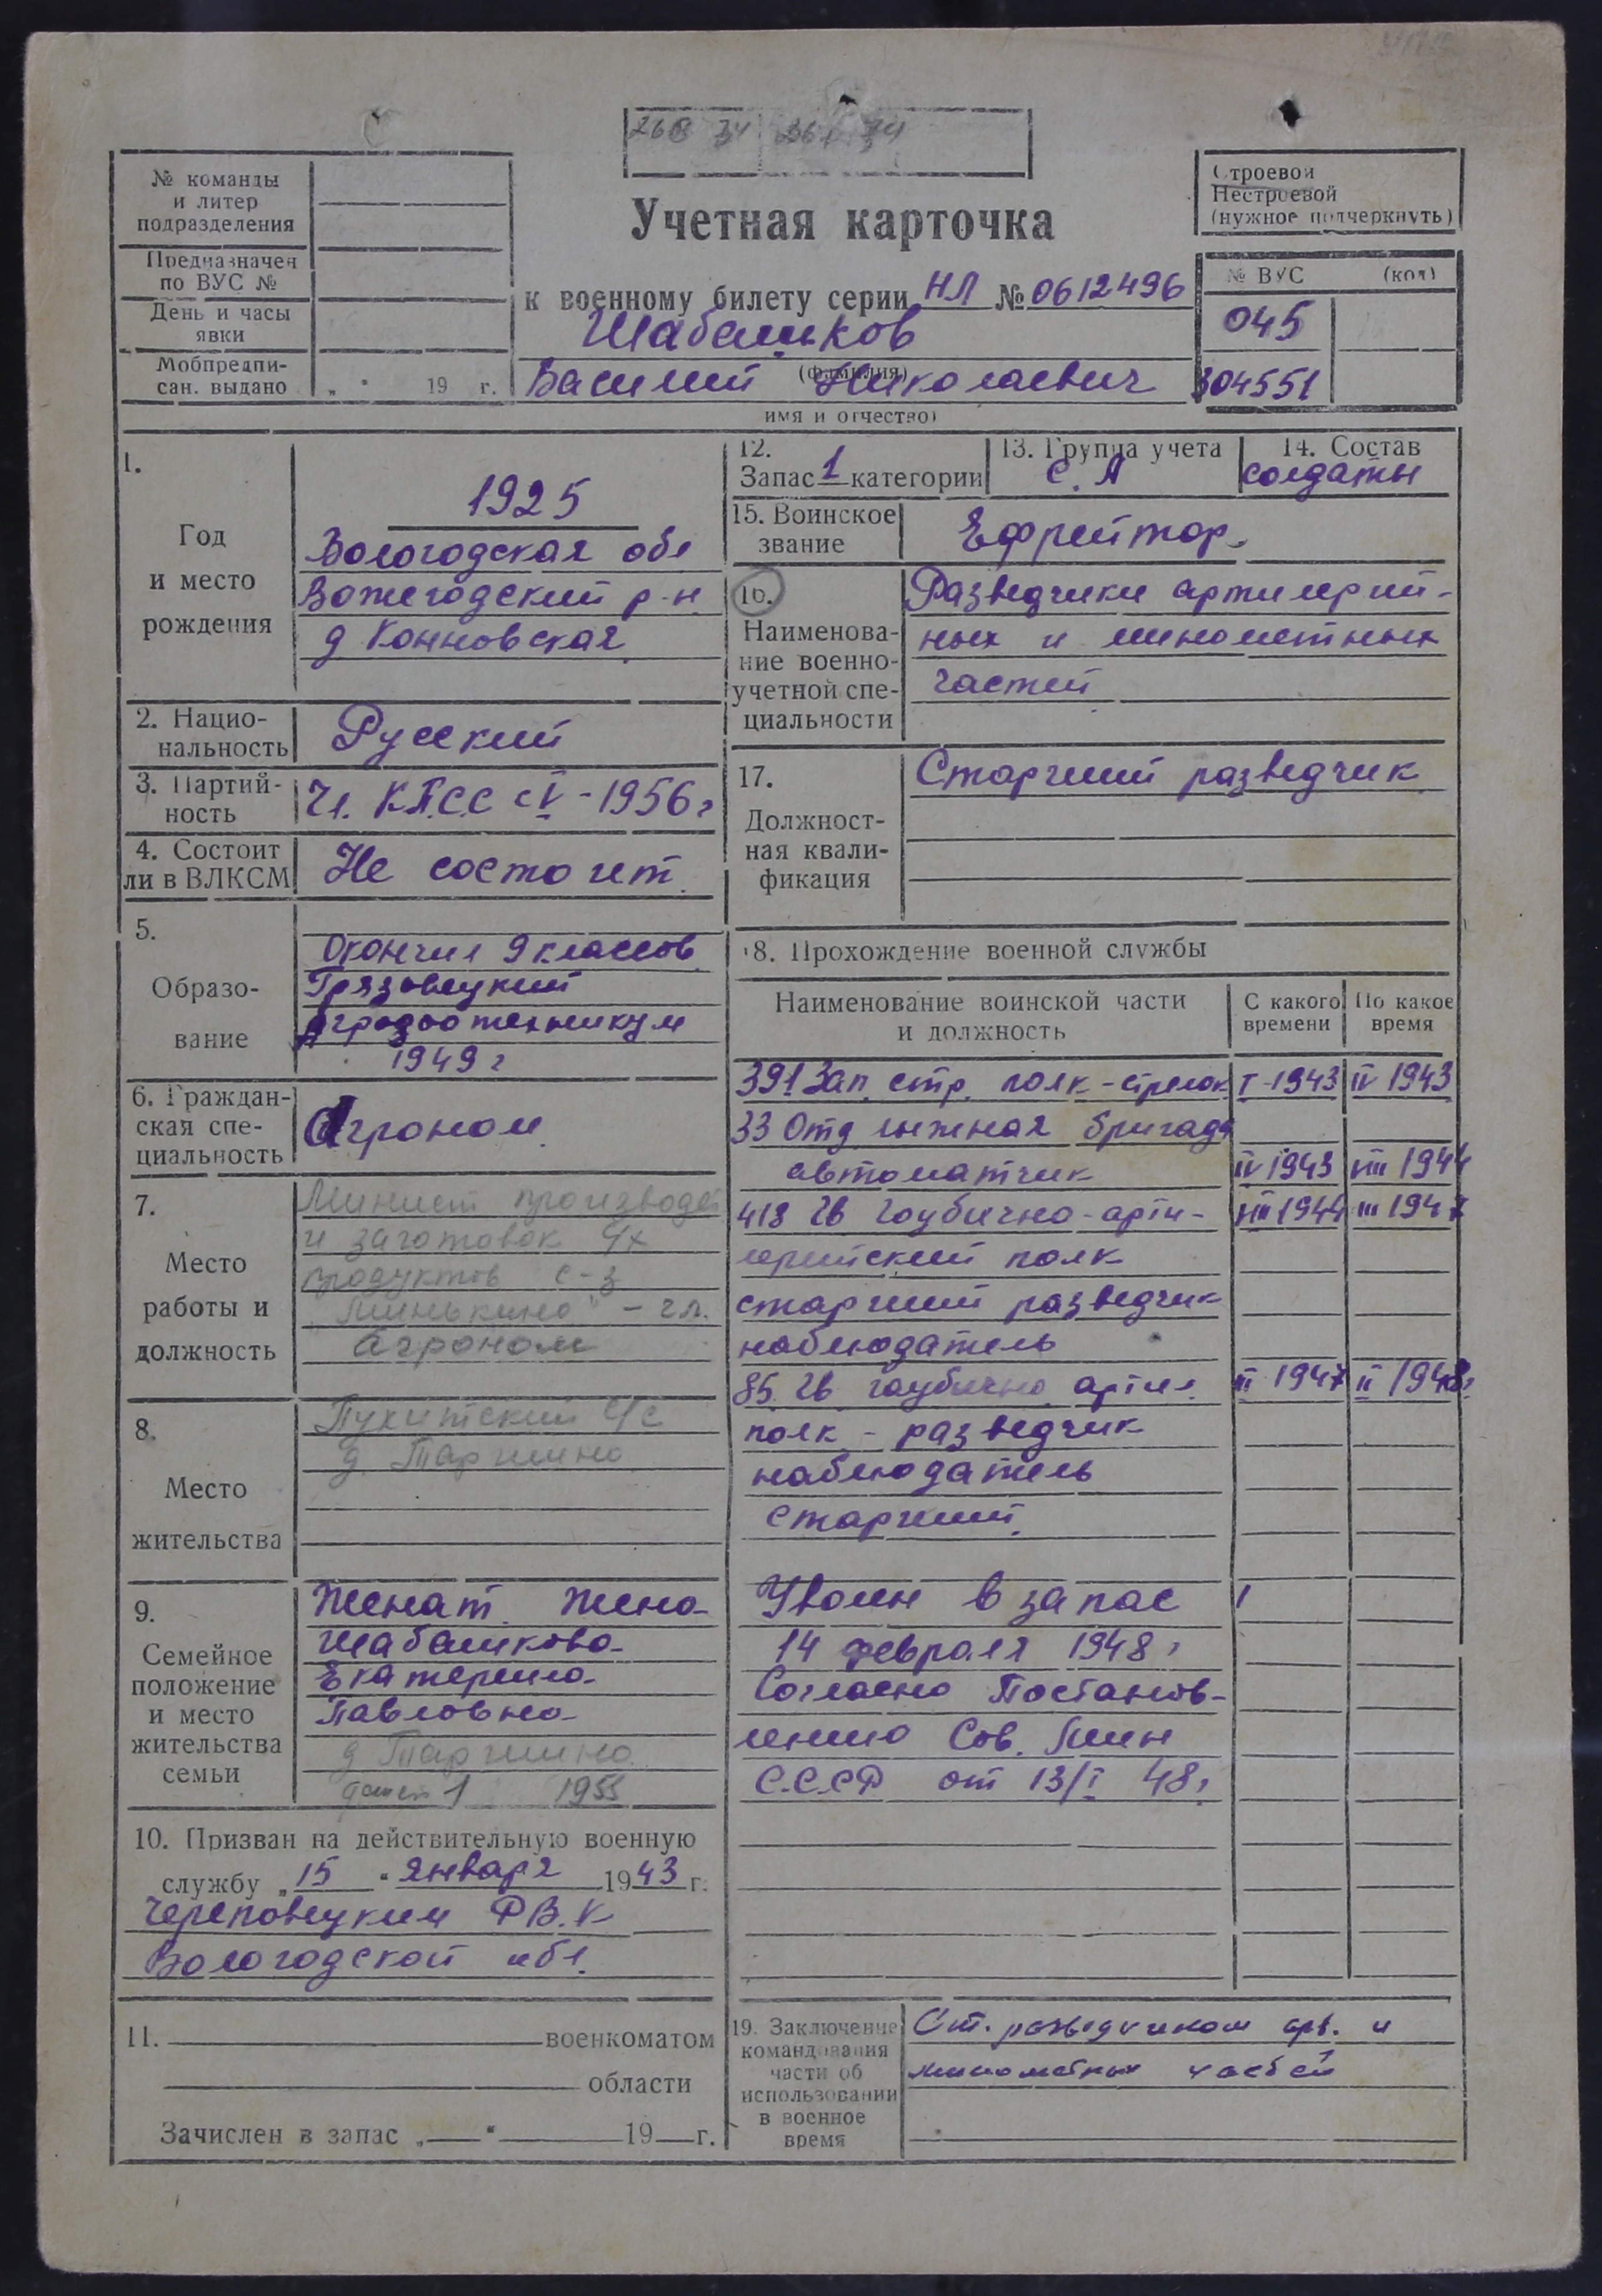 № команды
и литер
подразделения
Предназначен
по ВУС №
День и часы
явки
Мобпредпи-
сан. выдано „ " 19 г.
Строевой
Нестроевой
(нужное подчеркнуть)
Учетная карточка
к военному билету серии НЛ № 0612496
Шабашков
(фамилия)
Василий Николаевич
имя и отчество)
№ ВУС (код)
045
304551
1.
Год
и место
рождения
1925
Вологодская обл
Вожегодский р-н
д Конновская
2. Нацио-
нальность
Русский
3. Партий-
ность
Чл. К.П.С.С с V - 1956 г
4. Состоит
ли в ВЛКСМ
Не состоит.
5.
Образо-
вание
Окончил 9 классов
Грязовецкий
Агрозоотехникум
1949 г
6. Граждан-
ская спе-
циальность
Агроном
7.
Место
работы и
должность
Минист производст
и заготовок с/х
продуктов с-з
"Минькино" - гл.
агроном
8.
Место
жительства
с/с
д. Таршино
9.
Семейное
положение
и место
жительства
семьи
Женат. Жена
Шабашкова
Екатерина
Павловна
д Таршино
детей 1 1955
10. Призван на действительную военную
службу „15 " января 1943 г.
Череповецким РВ.К
Вологодской обл.
11. военкоматом
области
Зачислен в запас „ " 19 г.
12.
Запас 1 категории
13. Группа учета
С. А
14. Состав
солдаты
15. Воинское
звание
Ефрейтор.
16.
Наименова-
ние военно-
учетной спе-
циальности
Разведчики артилерий-
ных и минометных
частей
17.
Должност-
ная квали-
фикация
Старший разведчик
18. Прохождение военной службы
Наименование воинской части
и должность
С какого
времени
По какое
время
391 Зап. стр. полк - стрелок I-1943 IV 1943
33 Отд лыжная бригада
автоматчик IV 1943 VIII 1944
418 Гв гаубично-арти- VIII 1944 III 1947
лерийский полк
старший разведчик
наблюдатель
85. Гв. гаубично артил. III 1947 II 1948г
полк - разведчик
наблюдатель
старший.
Уволен в запас
14 февраля 1948 г
Согласно Постанов-
лению Сов. Мин
С.С.С.Р от 13/I 48 г
19. Заключение
командования
части об
использовании
в военное
время
Ст. разведчиком арт. и
минометных частей